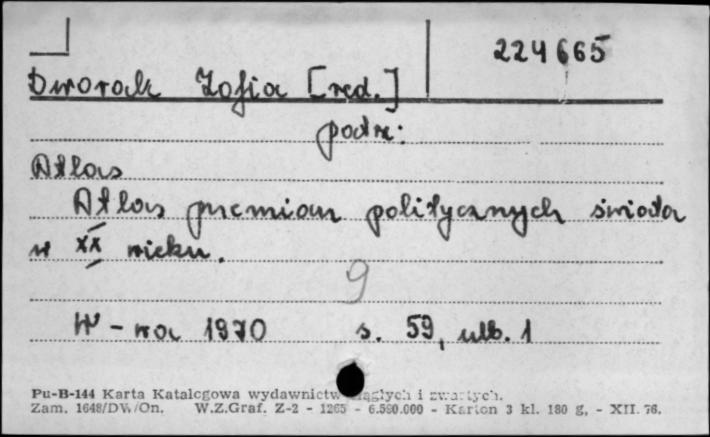 224665
Dworak Zofia [red.]
patrz:
Atlas
Atlas przemian politycznych świata
w XX wieku.
9
W-wa 1970 s. 59, nlb. 1
Pu-B-144 Karta Katalogowa wydawnictw ciągłych i zwartych.
Zam. 1648/DW./On. W.Z.Graf. Z-2 - 1265 - 6.590.000 - Karton 3 kl. 180 g, - XII. 76.